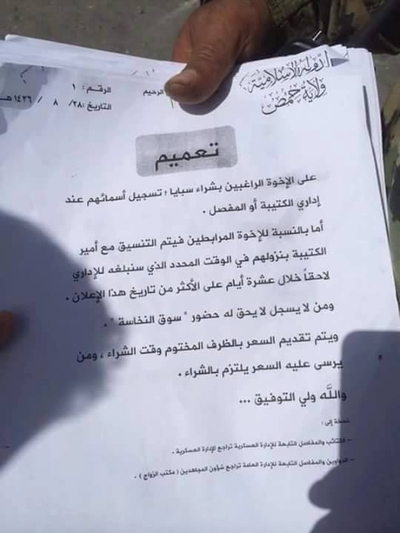 الدولة الإسلامية
ولاية حمص
الرحيم
الرقم: ١
التاريخ: ٢٨/ ٨ / ١٤٣٦ هـ
تعميم
على الإخوة الراغبين بشراء سبايا ؛ تسجيل أسمائهم عند
إداري الكتيبة أو المفصل .
أما بالنسبة للإخوة المرابطين فيتم التنسيق مع أمير
الكتيبة بنزولهم في الوقت المحدد الذي سنبلغه للإداري
لاحقاً خلال عشرة أيام على الأكثر من تاريخ هذا الإعلان .
ومن لا يسجل لا يحق له حضور " سوق النخاسة " .
ويتم تقديم السعر بالظرف المختوم وقت الشراء ، ومن
يرسى عليه السعر يلتزم بالشراء .
والله ولي التوفيق ...
نسخة إلى :
الكتائب والمفاصل التابعة للإدارة العسكرية تراجع الإدارة العسكرية .
الدواوين والمفاصل التابعة للإدارة العامة تراجع شؤون المجاهدين ( مكتب الزواج ) .